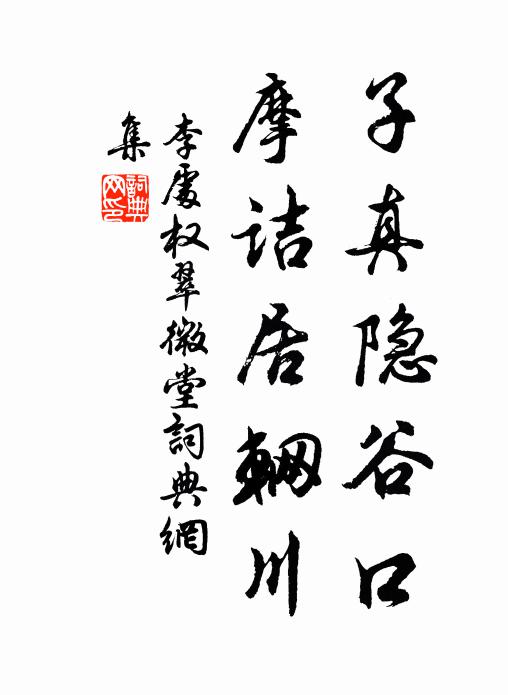 子真隐谷口
摩诘居輞川
李處权翠微堂詞典網
集
詞典網印